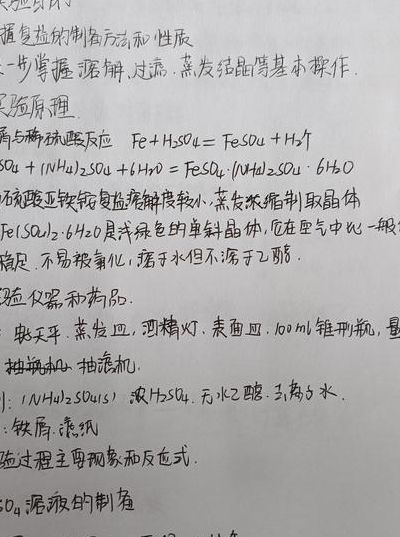 实验目的
握复盐的制备方法和性质
一步掌握溶解、过滤、蒸发结晶等基本操作.
实验原理.
屑与稀硫酸反应 Fe+H₂SO₄=FeSO₄+H₂↑
SO₄+(NH₄)₂SO₄+6H₂O=FeSO₄·(NH₄)₂SO₄·6H₂O
硫酸亚铁铵复盐溶解度较小,蒸发浓缩制取晶体
Fe(SO₄)₂·6H₂O是浅绿色的单斜晶体,它在空气中比一般
稳定.不易被氧化,溶于水但不溶于乙醇.
验仪器和药品.
:天平.蒸发皿,酒精灯.表面皿.100ml锥形瓶,量
抽滤机.
剂:(NH₄)₂SO₄(s) 浓H₂SO₄.无水乙醇.去离子水.
:铁屑.滤纸
验过程主要现象和反应式.
SO₄溶液的制备